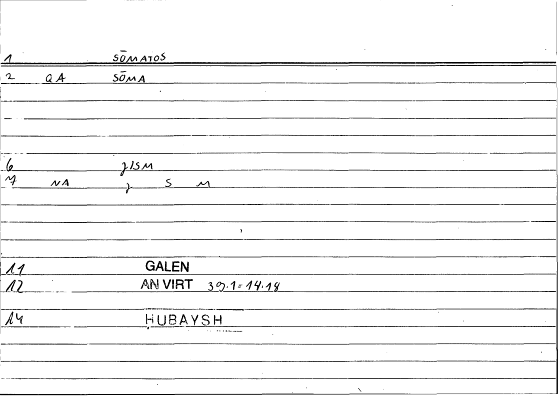 1 SŌMATOS
2 QA SŌMA
6 ǧISM
7 NA ǧ S M
11 GALEN
12 AN VIRT 39.1=14.18
14 ḤUBAYSH